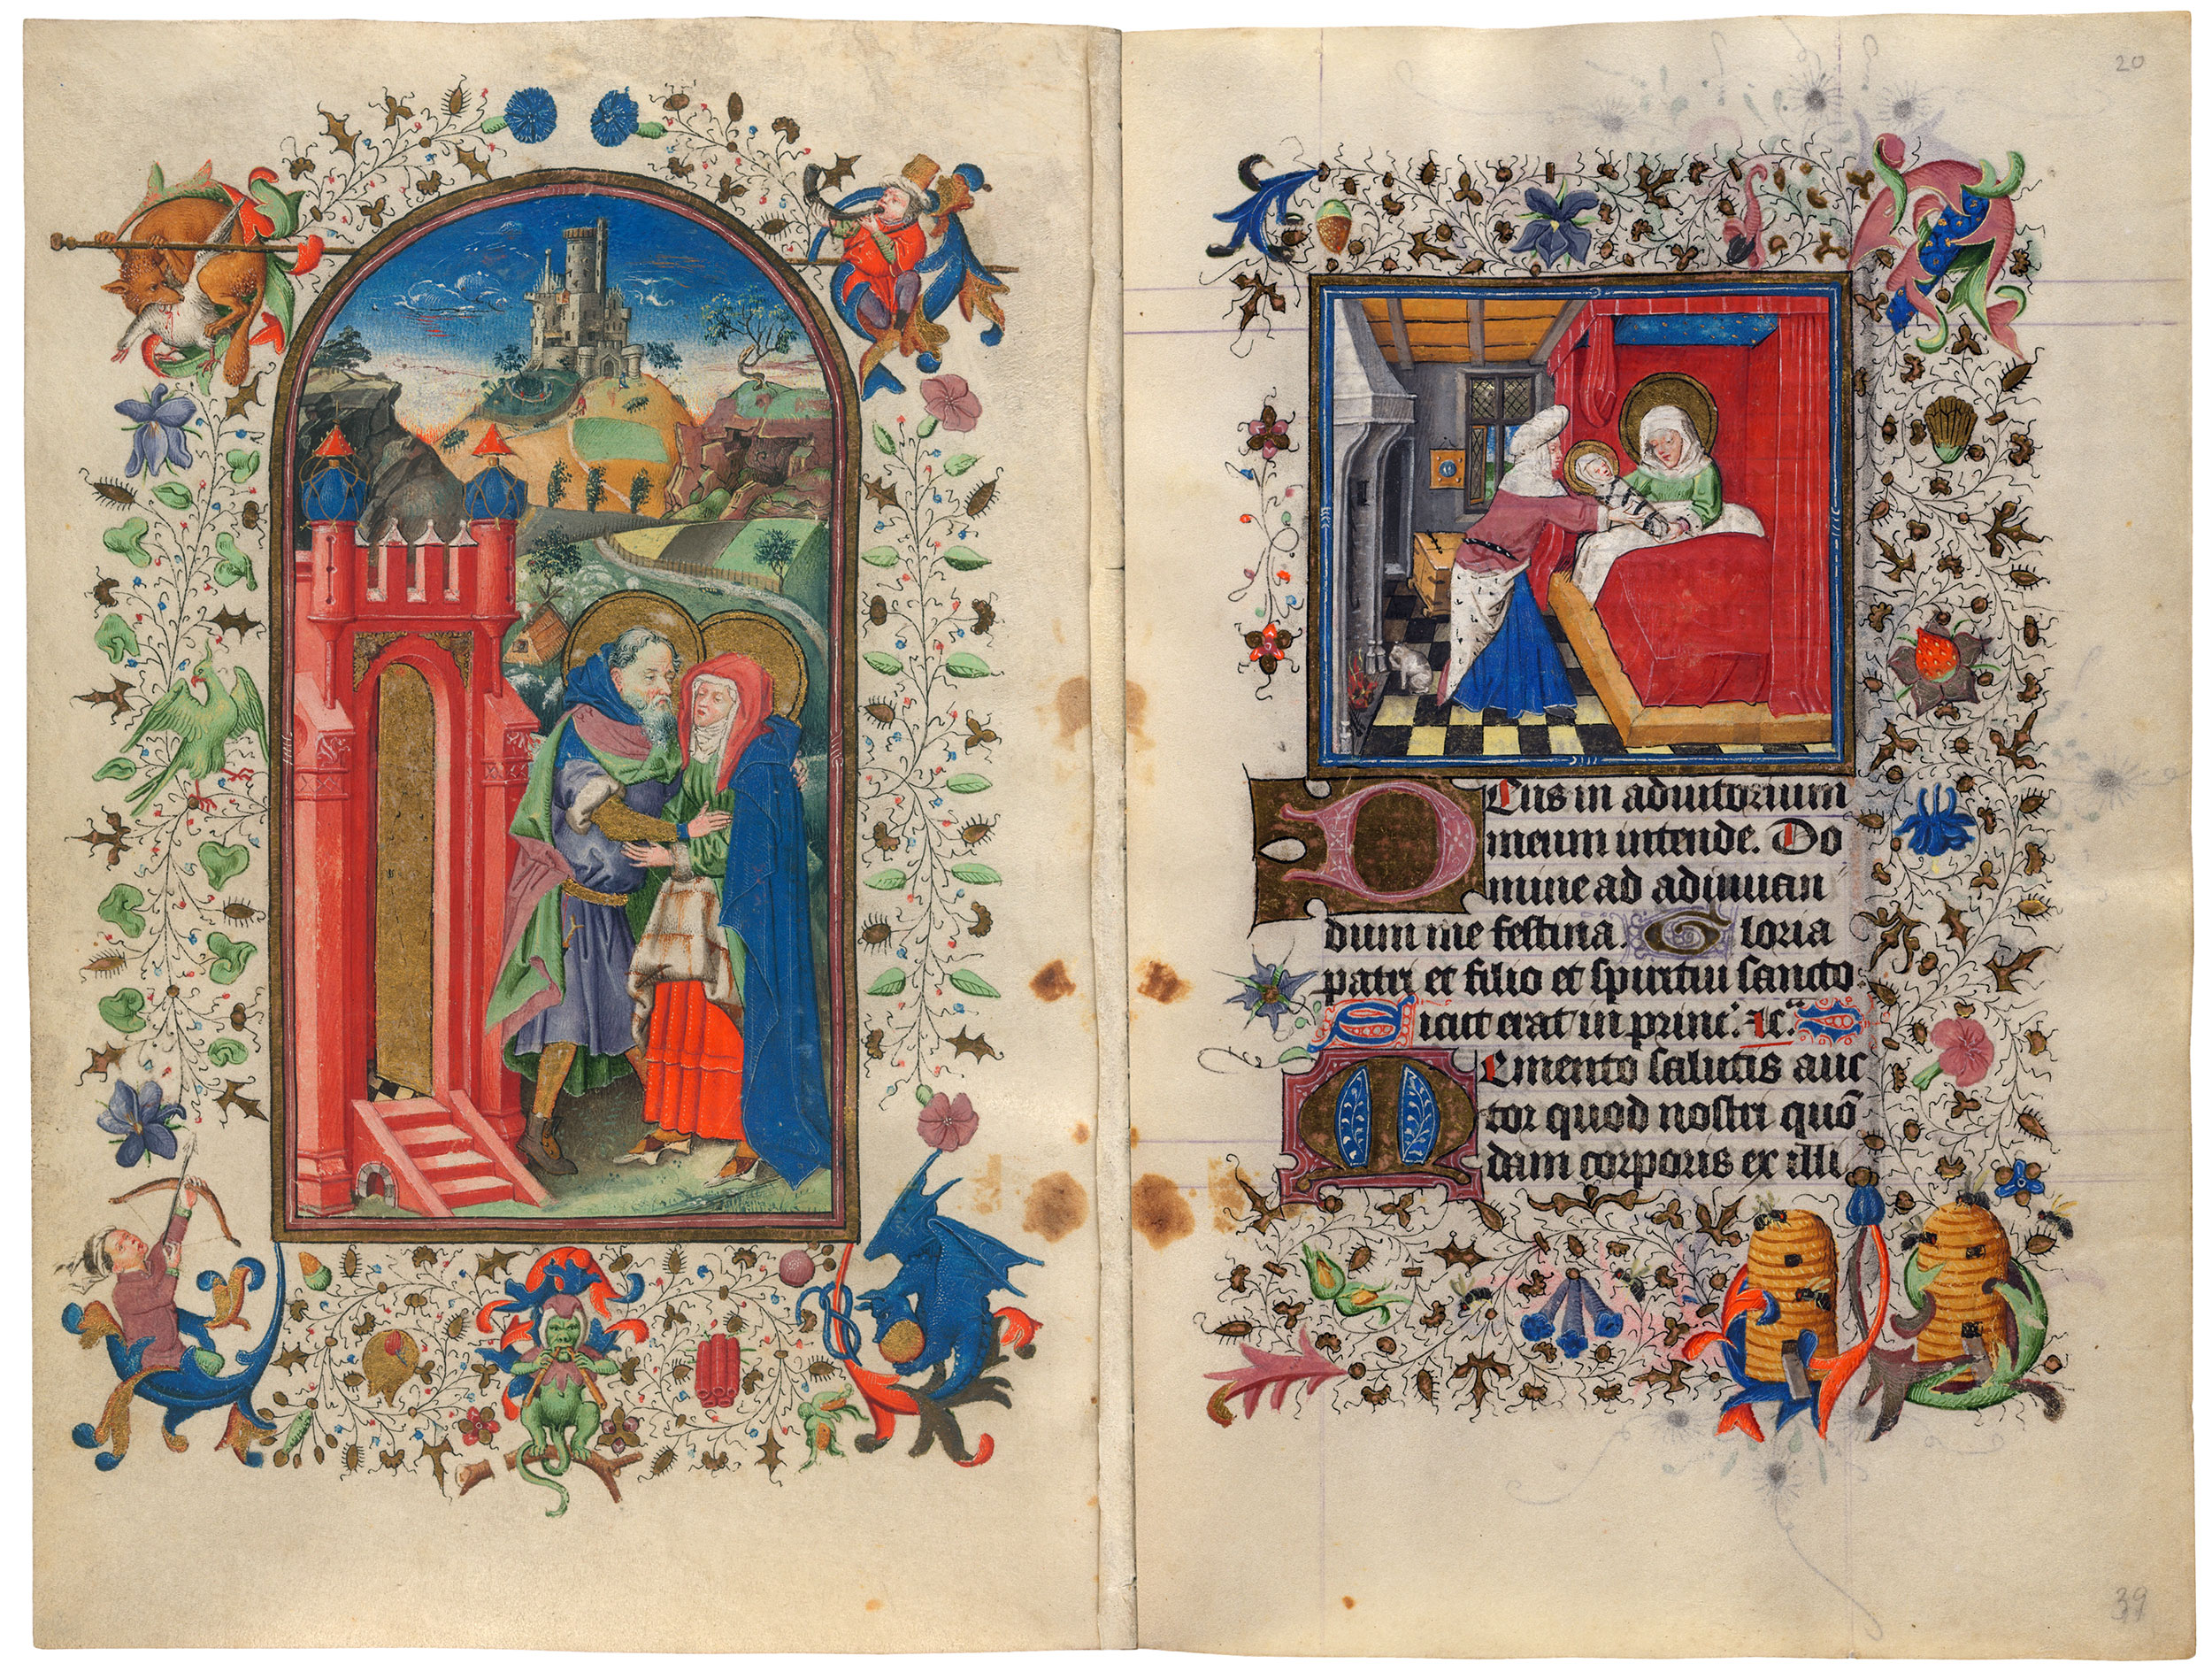 20
Deus in adiutorium
meum intende. Do
mine ad adiuuan
dum me festina. Gloria
patri et filio et spiritui sancto.
Sicut erat in princ. ꝛc.
Memento salutis auc
tor quod nostri quō
dam corporis ex illi
39